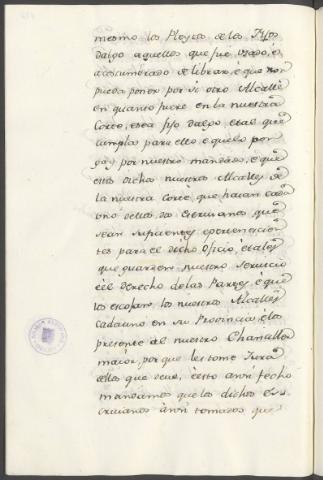 mesmo los Pleytos de los Fijos
dalgo aquellos que fué usado, è
acostumbrado de librar, è que non
pueda poner por si otro Alcalle
en quanto fuere en la nuestra
Corte, è sea fijo dalgo, è tal que
cumpla para ello è que lo pon-
ga por nuestro mandado, è que
estos dichos nuestros Alcalles de
la nuestra Corte, que hayan cada
uno dellos dos Escrivanos que
sean suficientes è pertenecien-
tes para el dicho Oficio, è tales
que guarden nuestro servicio
è el derecho de las Partes, è que
los escojan los nuestros Alcalles
cada uno en su Provincia, è los
presente al nuestro Chanciller
maior, porque les tome Jura
dellos que deve, è esto ansi fecho
mandamos que los dichos Es-
crivanos ansi tomados que